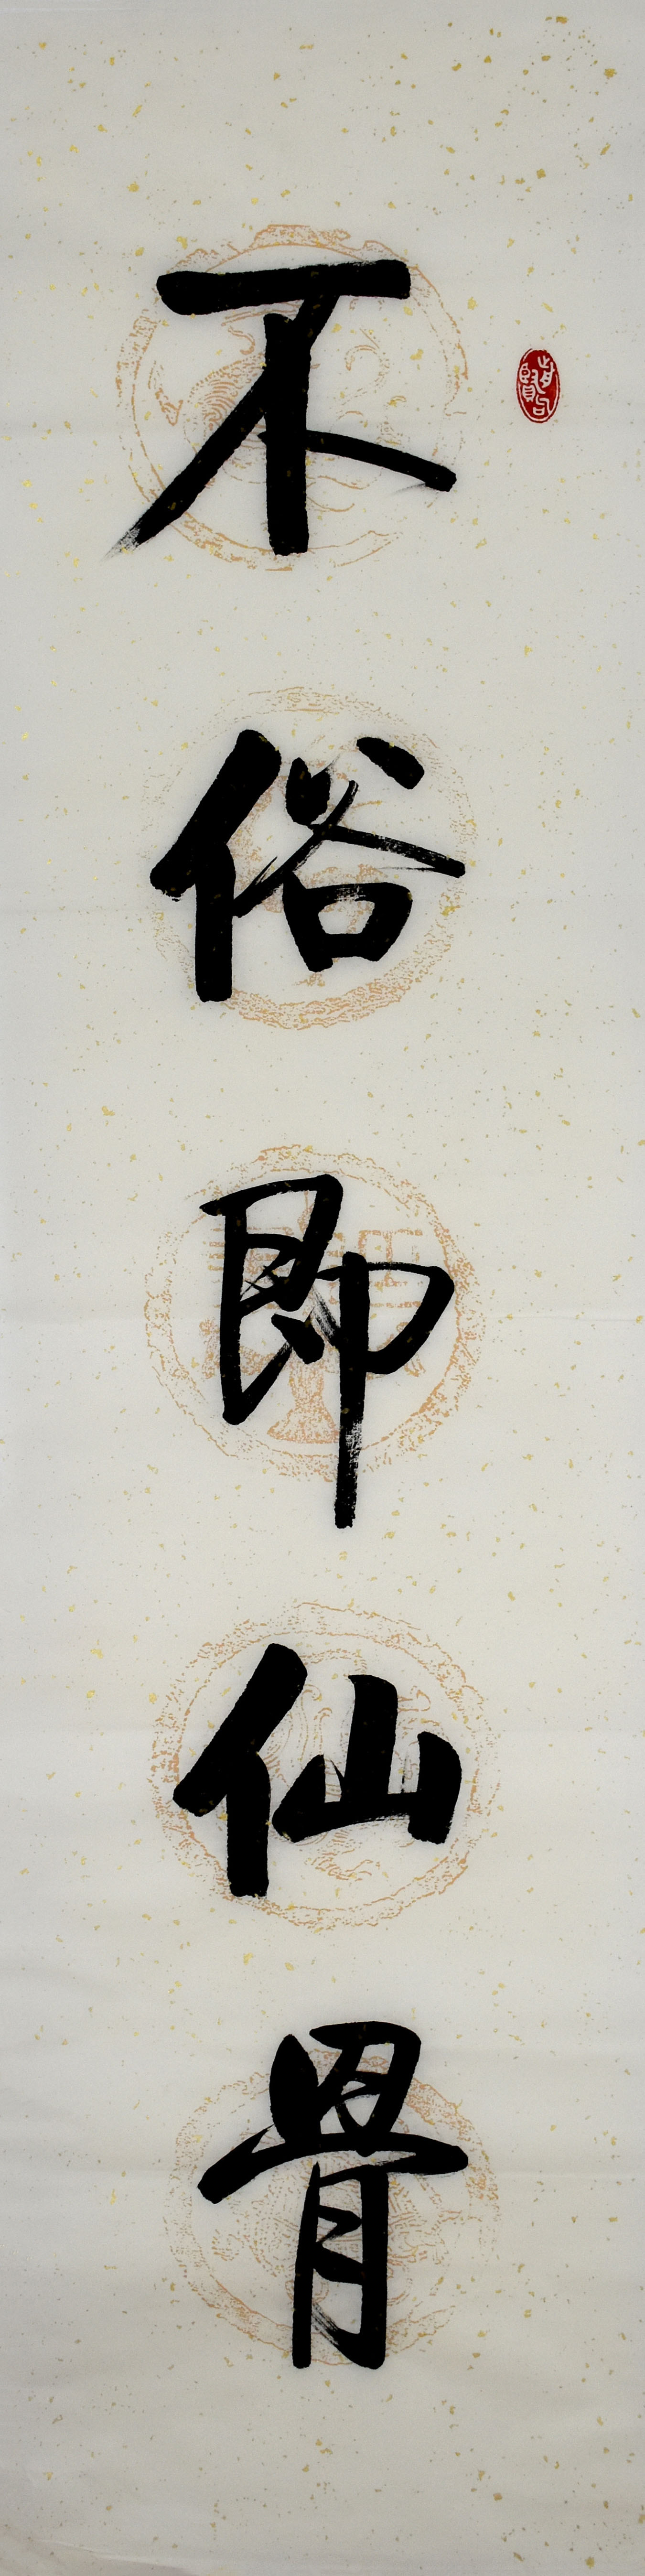 不俗即仙骨